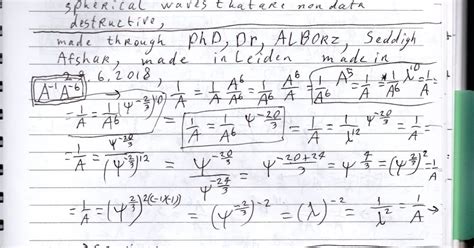 spherical waves that are non data
destructive,
made through PhD, Dr, ALBORZ, Seddigh
Afshar, made in Leiden made in
6, 2018,
A⁻¹A⁻⁶ → 1/A = 1/A A⁶/A⁶ = 1/A A⁶/A⁶ = 1/A⁶ A⁵ = 1/A = 1/A⁶ λ¹⁰ = 1/A
= 1/A = 1/A⁶ ψ^(-2/3)10 1/A = 1/A⁶ ψ^(-20/3) = 1/A = 1/λ¹² ψ^(-20/3) = 1/A =
= 1/A = ψ^(-20/3)/(ψ^(-2/3))¹² = ψ^(-20/3)/ψ^(-24/3) = ψ^((-20+24)/3) = ψ^(4/3) = (ψ^(2/3))² = 1/A
→ = 1/A = (ψ^(2/3))^(2(-1)(-1)) = (ψ^(-2/3))⁻² = (λ)⁻² = 1/λ² = 1/A →